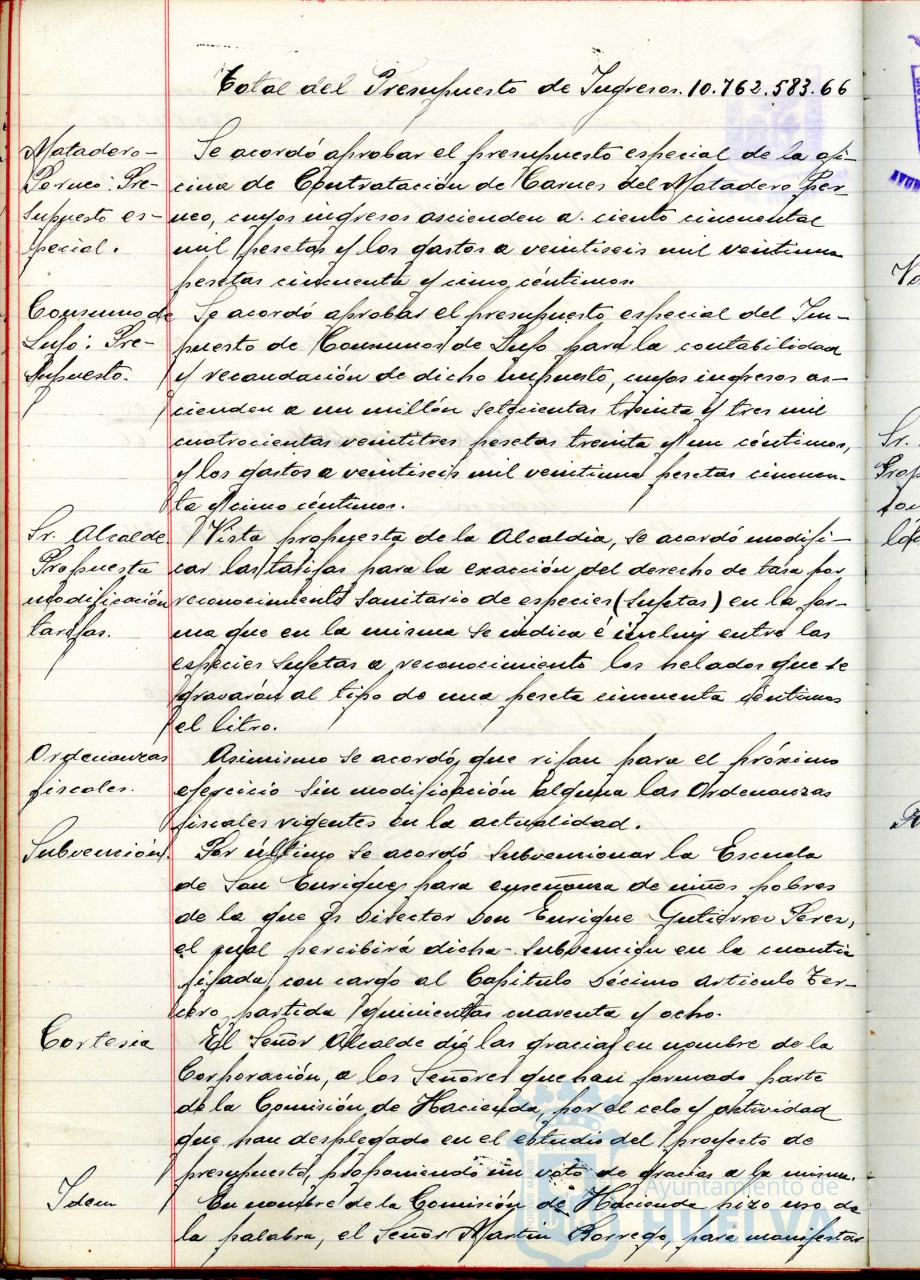 Total del Presupuesto de Ingresos. 10.762.583.66
Matadero-
Poruco: Pre-
supuesto es-
pecial.
Se acordó aprobar el presupuesto especial de la ofi-
cina de Contratación de Carnes del Matadero Por-
uco, cuyos ingresos ascienden a ciento cincuenta
mil pesetas y los gastos a veintiseis mil veintiuna
pesetas cincuenta y cinco céntimos.
Consumo de
Lujo: Pre-
supuesto.
Se acordó aprobar el presupuesto especial del Im-
puesto de Consumos de Lujo para la contabilidad
y recaudación de dicho impuesto, cuyos ingresos as-
cienden a un millón setecientas treinta y tres mil
cuatrocientas veintitres pesetas treinta y un céntimos,
y los gastos a veintiseis mil veintiuna pesetas cincuen-
ta y cinco céntimos.
Sr. Alcalde.
Propuesta
modificación
tarifas.
Vista propuesta de la Alcaldia, se acordó modifi-
car las tarifas para la exacción del derecho de tasa por
reconocimiento sanitario de especies (sujetas) en la for-
ma que en la misma se indica é incluir entre las
especies sujetas a reconocimiento los helados que se
gravarán al tipo de una peseta cincuenta céntimos
el litro.
Ordenanzas
fiscales.
Asimismo se acordó, que rijan para el próximo
ejercicio sin modificación alguna las Ordenanzas
fiscales vigentes en la actualidad.
Subvención.
Por último se acordó subvencionar la Escuela
de San Enrique, para enseñanza de niños pobres
de la que es Director Don Enrique Gutiérrez Perez,
el cual percibirá dicha subvención en la cuantia
fijada, con cargo al Capitulo Décimo Articulo Ter-
cero, partida quinientas cuarenta y ocho.
Cortesia
El Señor Alcalde dió las gracias, en nombre de la
Corporación, a los Señores que han formado parte
de la Comisión de Hacienda, por el celo y actividad
que han desplegado en el estudio del proyecto de
presupuesto, proponiendo un voto de gracias a la misma.
Idem
En nombre de la Comisión de Hacienda hizo uso de
la palabra, el Señor Martin Borrego, para manifestar
Ayuntamiento de
HUELVA